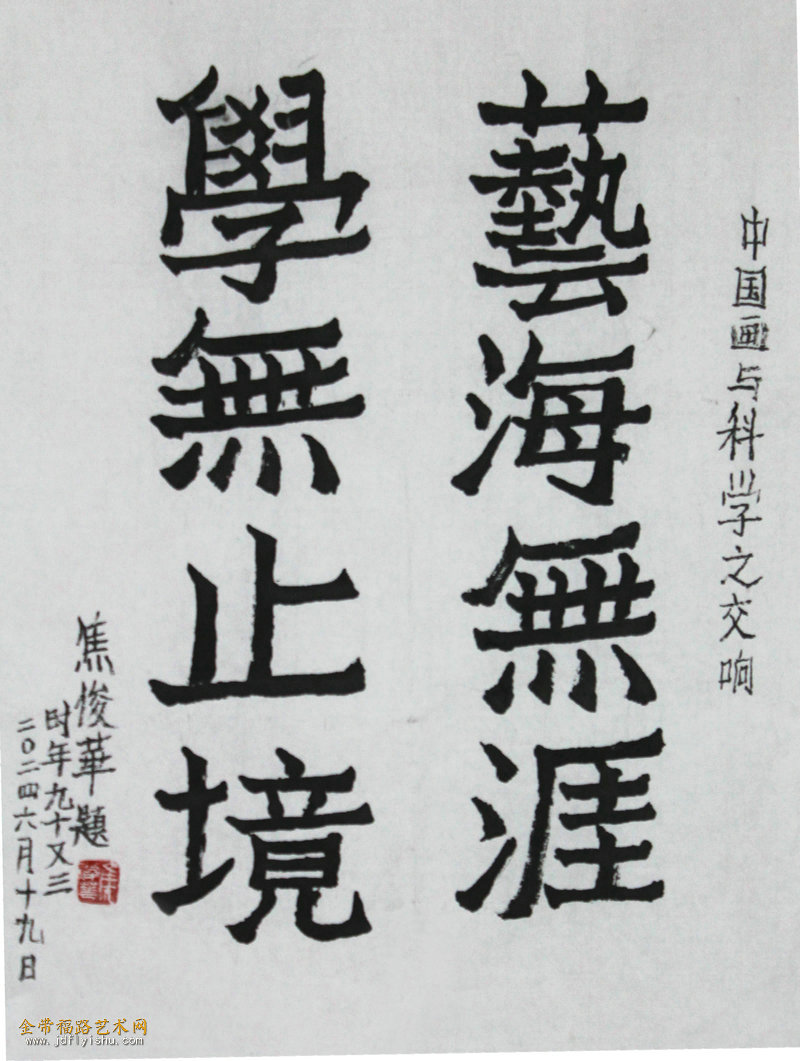 中国画与科学之交响
藝海無涯
學無止境
焦俊華題
时年九十又三
二〇二四六月十九日
金带福路艺术网
www.jdflyishu.com